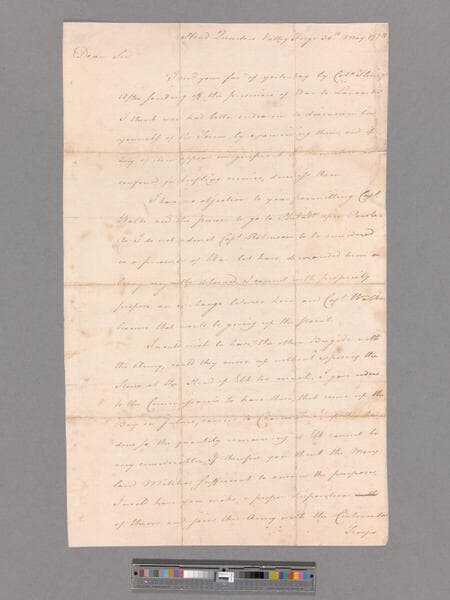 Head Quarters Valley Forge 30th May 1778
Dear Sir
I recd your favr of yesterday by Colo
After sending off the prisoners of War to Lancaster
I think you had better endeavour to
yourself of the Tories by examining them, and if
any of them appear insignificant
confined on trifling dismiss them
I have no objection to your permitting Capt
and the prisoner to go to Philada upon Parole
I do not admit Capt Robinson to be considered
as a prisoner of War but have demanded him as
I cannot with propriety
propose an exchange between him and Capt
because that would be giving up the point
I would wish to have the other Brigade with
the Army, could they move up without exposing the
Stores at the Head of Elk too much. I gave orders
to the Commissaries to have those that come up the
Bay in future, carried to
done so the quantity remaining at Elk cannot be
very considerable. If therefore you think the Mary
land Militia sufficient to answer the purpose,
I would have you make a proper disposition
of them and join the Army with the Continental
Troops